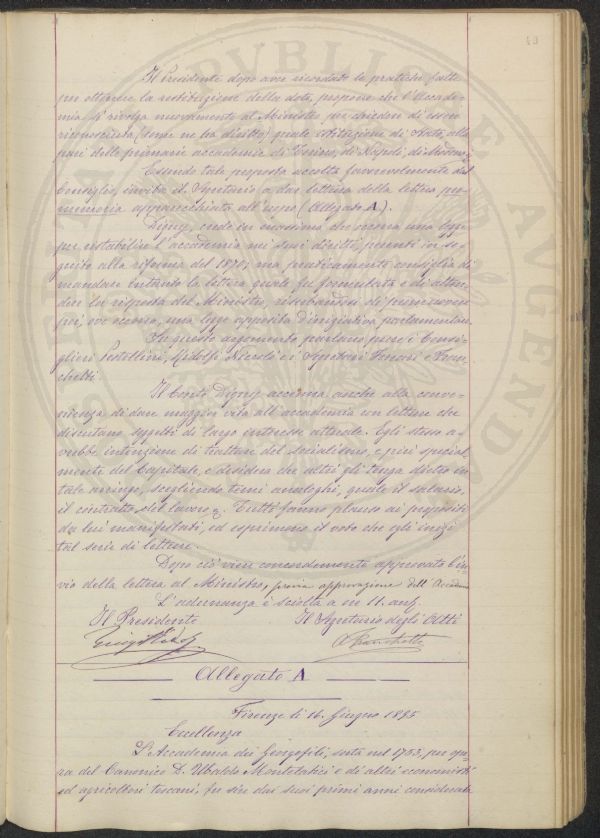 49
Il Presidente dopo aver ricordato le pratiche fatte
per ottenere la restituzione della dote, propone che l'Accade-
mia si rivolga nuovamente al Ministro per chieder di essere
riconosciuta (come ne ha diritto) quale istituzione di Stato, alla
pari delle primarie accademie di Torino, di Napoli, di Modena.
Essendo tale proposta accolta favorevolmente dal
Consiglio, invita il Segretario a dar lettura della lettera pro-
memoria apparecchiata all'uopo (Allegato A).
Digny, crede in massima che occorra una legge
per ristabilire l'accademia nei suoi diritti perenti in se-
guito alla riforma del 1870; ma praticamente consiglia di
mandare intanto la lettera quale fu formulata e di atten-
dere la risposta del Ministro, riserbandosi di promuovere
poi, ove occorra, una legge apposita d'iniziativa parlamentare.
In questo argomento parlano pure i Consi-
glieri Pestellini, Ridolfi Niccolò e i Segretari
chetti
Il Conte Digny accenna anche alla conve-
nienza di dare maggior vita all'accademia con letture che
discutano soggetti di largo interesse attuale. Egli stesso a-
vrebbe intenzione di trattare del socialismo, e più special-
mente del Capitale, e desidera che altri gli tenga dietro in
tale arringo, scegliendo temi analoghi, quale il salario,
il contratto del lavoro. Tutti fanno plauso ai propositi
da lui manifestati, ed esprimono il voto che egli inizi
tal serie di letture.
Dopo ciò viene concordemente approvato l'in-
vio della lettera al Ministro, previa approvazione dell'Accademia
L'adunanza è sciolta a ore 11. ant.
Il Presidente Il Segretario degli Atti
Allegato A
Firenze li 16. Giugno 1895
Eccellenza
L'Accademia dei Georgofili, sorta nel 1753, per ope-
ra del Canonico D. Ubaldo Montelatici e di altri economisti
ed agricoltori toscani, fu sin dai suoi primi anni considerata